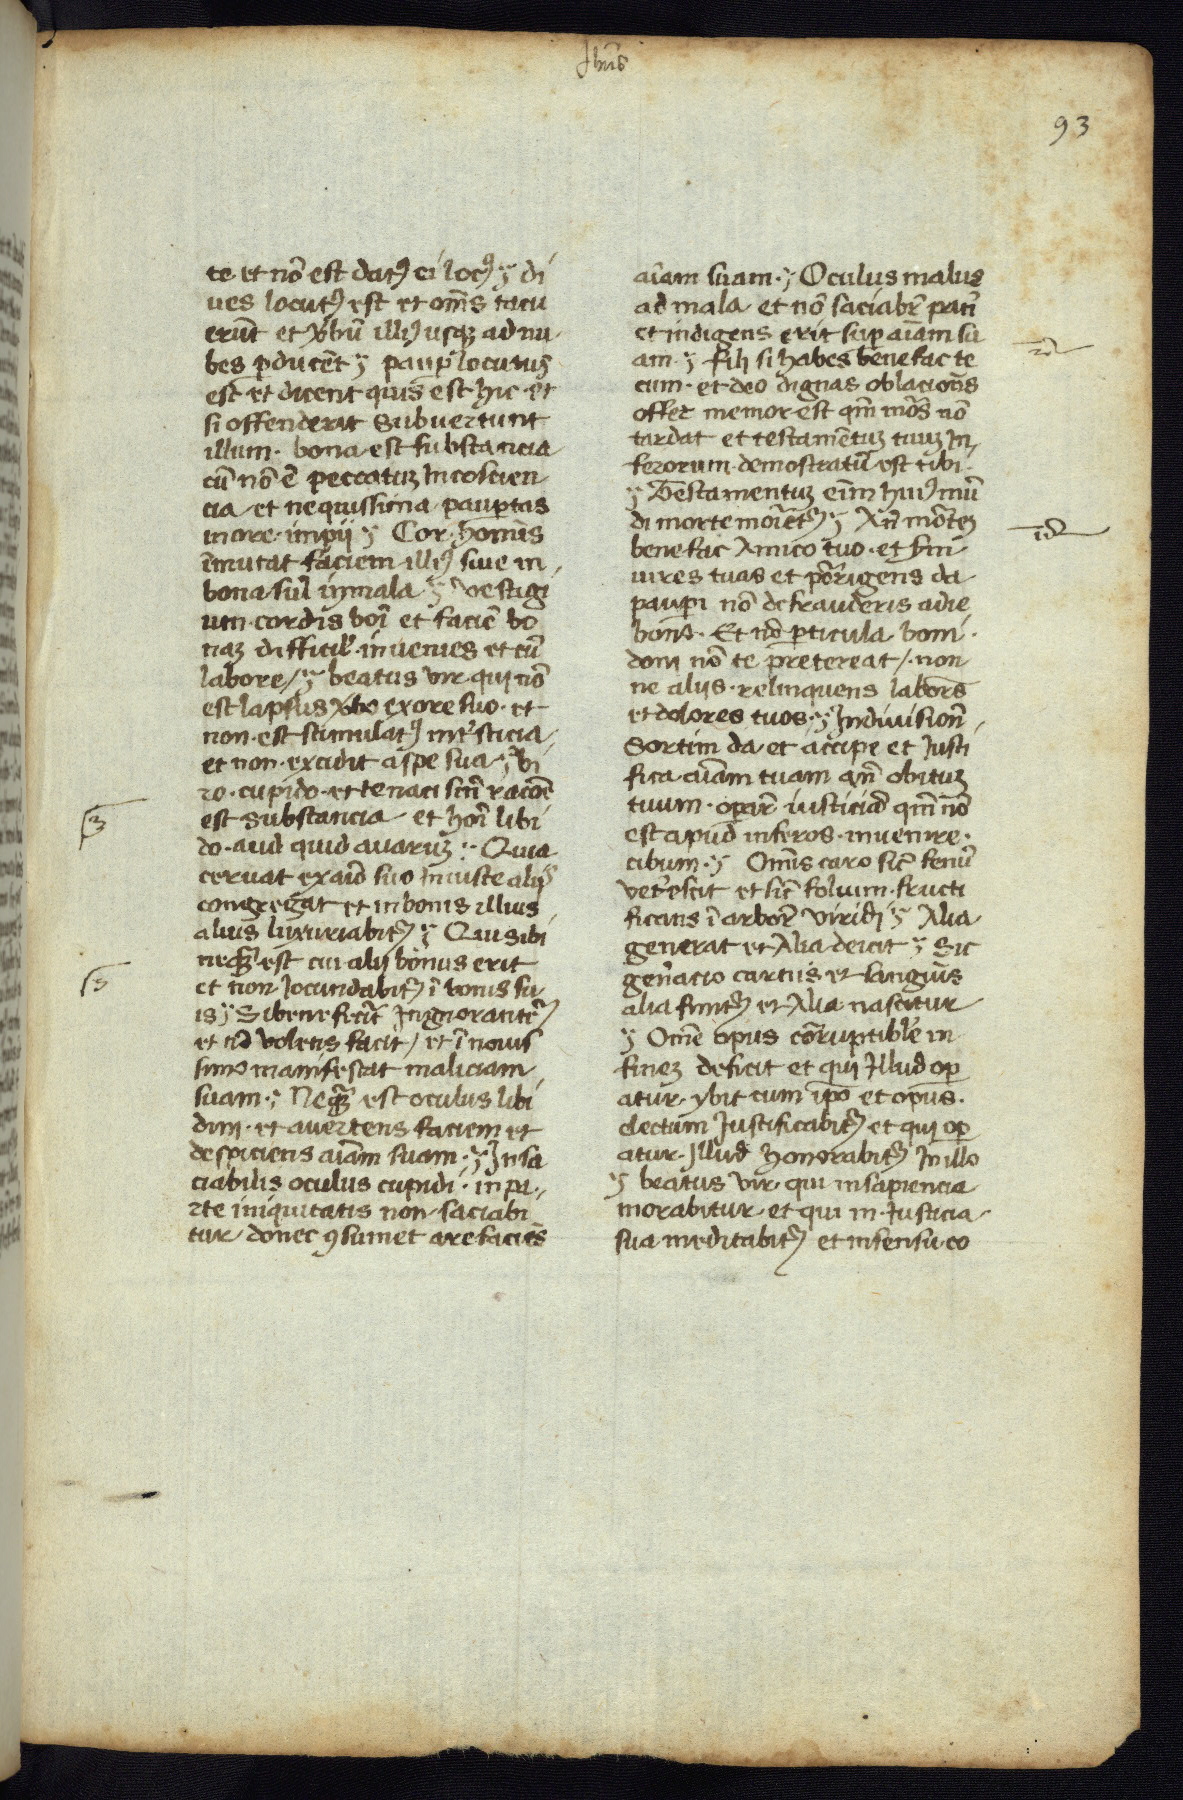 Jhūs
93
te et nō est datꝰ ei locꝰ ÿ di
ues locutꝰ est et om̄s tacu
erūt et v̾bū illiꝰ usqꝫ ad nu
bes ꝑducēt ÿ pauꝑ locutus
est et dicent quis est hic et
si offenderit subuertunt
illum · bona est substancia
cū nō ē peccatuꝫ In coscien
cia et nequissima pauꝑtas
in ore impij ÿ Cor hominis
īmutat faciem illiꝰ siue in
bona siue in mala ÿ vestigi
um cordis boī et faciē bo
naꝫ difficil̾ inuenies et cū
labore / ÿ beatus vir qui nō
est lapsus v̾bo ex ore suo · et
non est stimulatꝰ in t̾sticia
et non excidit a spe sua ÿ vi
ro cupido et tenaci sin̄ racōe
est substancia et hoī libi
do aud quid auaruꝫ : Qui a
ceruat ex aīo suo Iniuste alijs
congregat et in bonis illius
alius luxuriabitꝛ ÿ Qui sibi
neqꝫ est cui alij bonus erit
et non Iocundabitꝛ ī bonis su
is ÿ Si bene fecīt Ingnorantꝛ
et nō volens facit / et ī nouis
simo manifestat maliciam
suam · ÿ Neqꝫ est oculus libi
dini · et auertens faciem et
despiciens aīam suam · ÿ Insa
ciabilis oculus cupidi · in pa
rte iniquitatis non saciabi
tur donec ꝯsumet arefaciēs
3
3
aīam suam · ÿ Oculus malus
ad mala et nō saciabr̄ pan̄
et indigens erit suꝑ aīam su
am ÿ fili si habes benefac te
cum · et deo dignas oblaciōes
offer memor est qm̄ mōs nō
tardat et testamētuꝫ tuuꝫ In
ferorum demostratū est tibi ·
ÿ Testamentuꝫ eīm huiꝰ mū
di morte moriētꝛ ÿ An̄ mōtē
benefac Amico tuo · et s̄m
uires tuas et pōrrigens da
pauꝑi nō defrauderis a die
bono · Et nō ꝑticula boni ·
doni nō te pretereat / · non
ne alijs relinquens labors̄
et dolores tuos · ÿ In diuision̄
Sortim da et accipe et Iusti
fica aīam tuam an̄ obituꝫ
tuum · oꝑar̄ iusticiā qm̄ nō
est apud inferos inuenire ·
cibum · ÿ Om̄is caro sic̄ fenū
vet̾escit et sic̄ folium fructi
ficans ī arbor̄ viridi ÿ Alia
generat et Alia deicit ÿ Sic
gen̄acio carnis et sangius
alia finitꝛ et Alia nascitur
ÿ Om̄e opus cōrruptible in
fineꝫ deficit et qui Illud oꝑ
atur ybit cum ip̄o et opus ·
electum Iustificabitꝛ et qui oꝑ
atur Illud honorabitꝛ In illo
ÿ beatus vir qui in sapiencia
morabitur et qui in Iusticia
sua meditabitꝛ et in sensu co